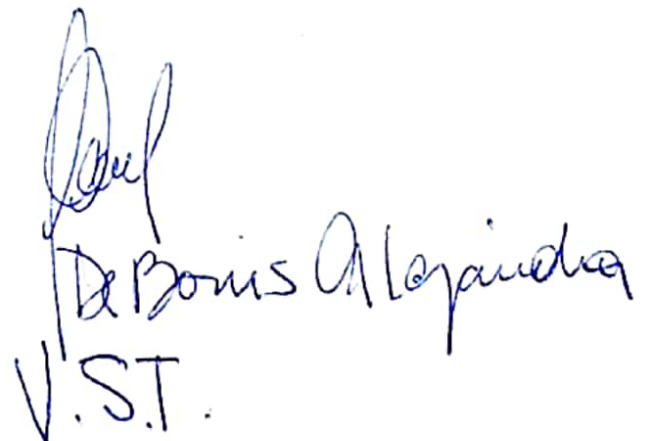 De Bonis Alejandra
V.S.T.